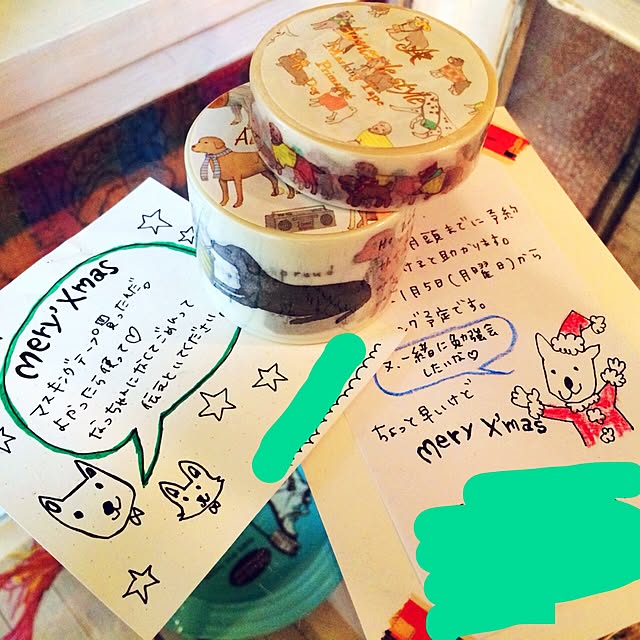 Mery Xmas
マスキングテープ買ったんだ。
よかったら使って♡
だっちゃんになくてごめんって
伝えといてください
月頭までに予約
けると助かります。
1月5日(月曜日)から
ング予定です。
又、一緒に勉強会
したいな♡
ちょっと早いけど
Mery X'mas
Masking Tape
proud